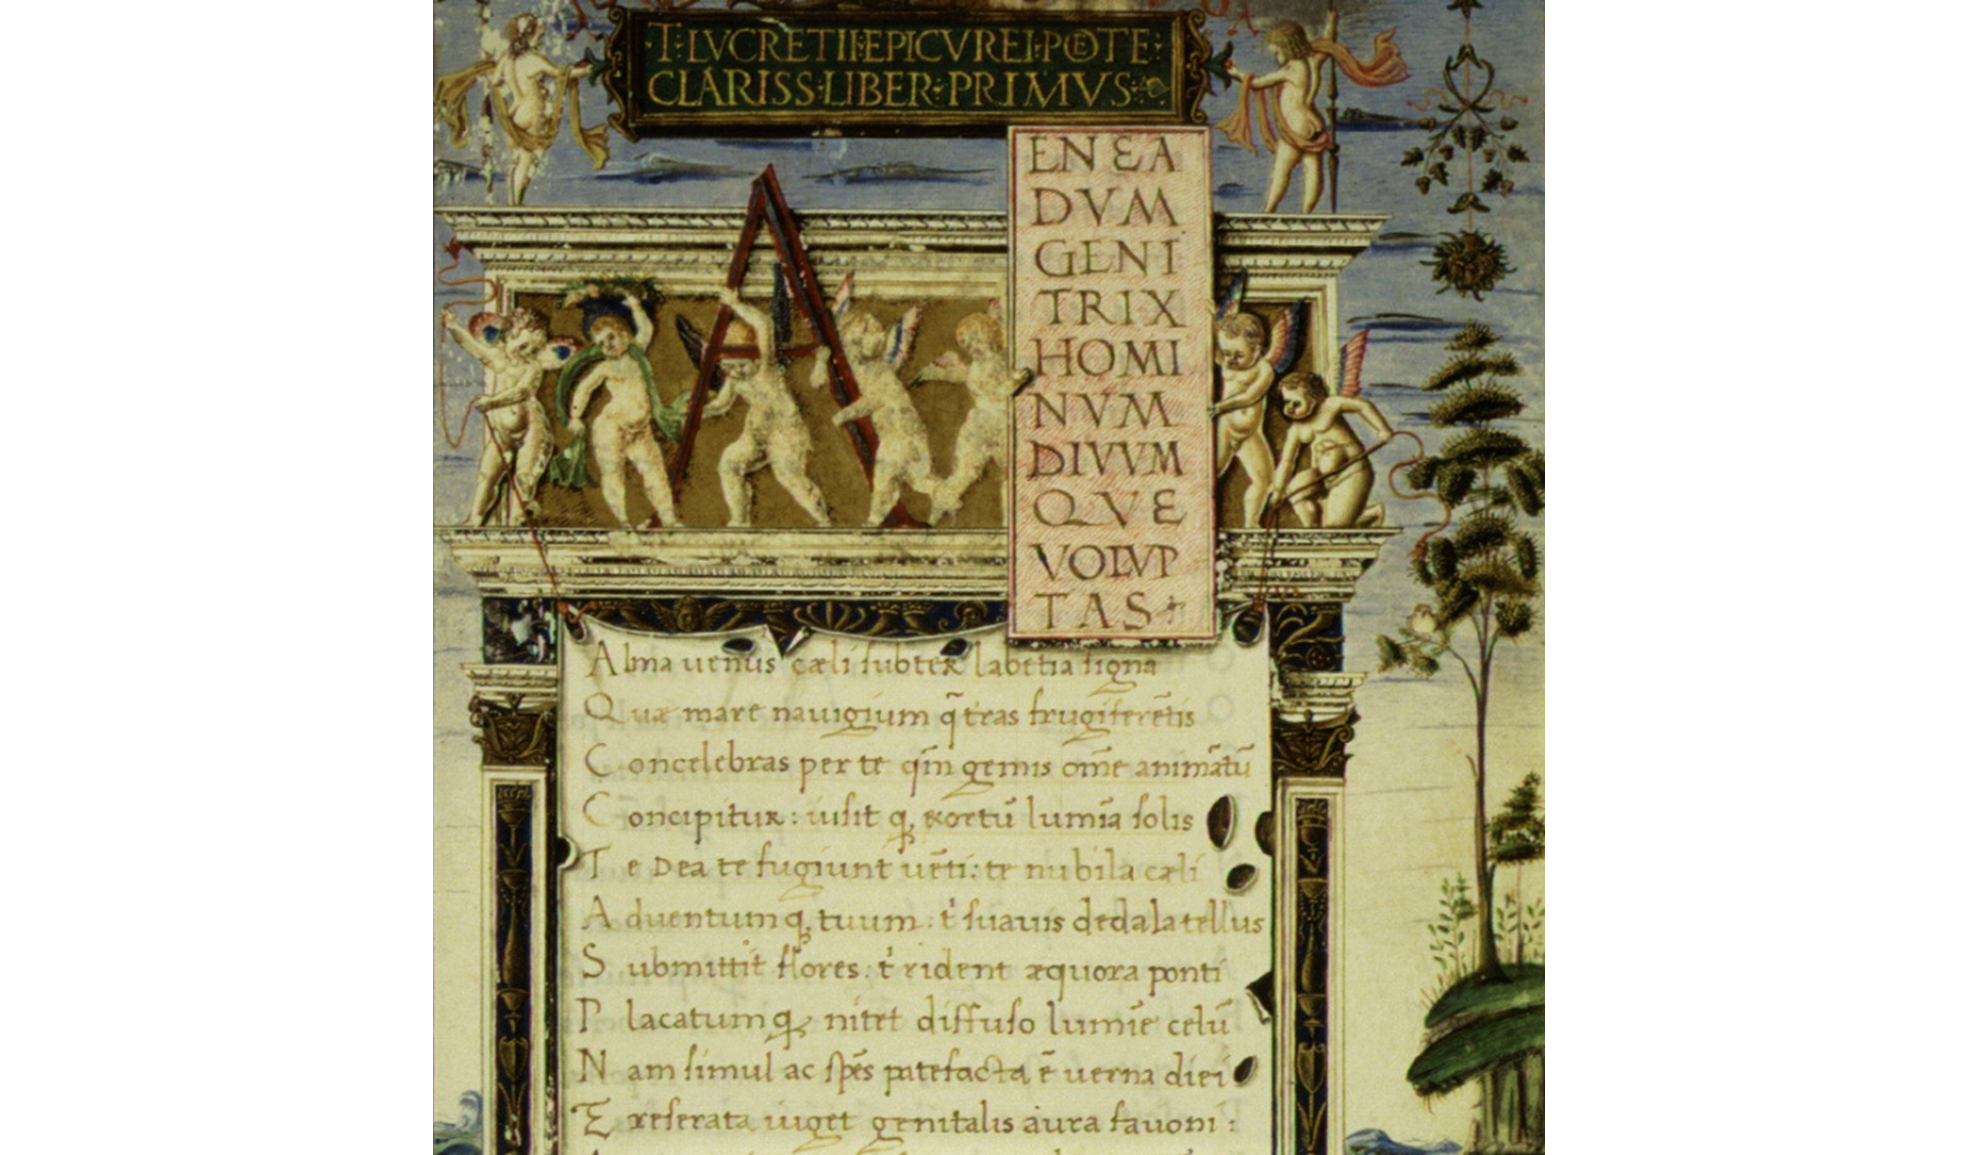 ·T·LVCRETII·EPICVREI·POETE:
CLARISS·LIBER·PRIMVS·
A
ENEA
DVM
GENI
TRIX
HOMI
NVM
DIVVM
QVE
VOLVP
TAS
Alma uenus cæli subter labētia signa
Quæ mare nauigium q̄ tr̄as frugiferētis
Concelebras per te qm̄ genus om̄e animātū
Concipitur: uisit q; exortū lumīa solis
Te Dea te fugiunt uēti: te nubila cæli
Aduentum q; tuum: t' suauis dedala tellus
Submittit flores: t' rident æquora ponti
Placatum q; nitet diffuso lumīe celū
Nam simul ac spēs patefacta ē uerna diei
Et reserata uiget genitalis aura fauoni: